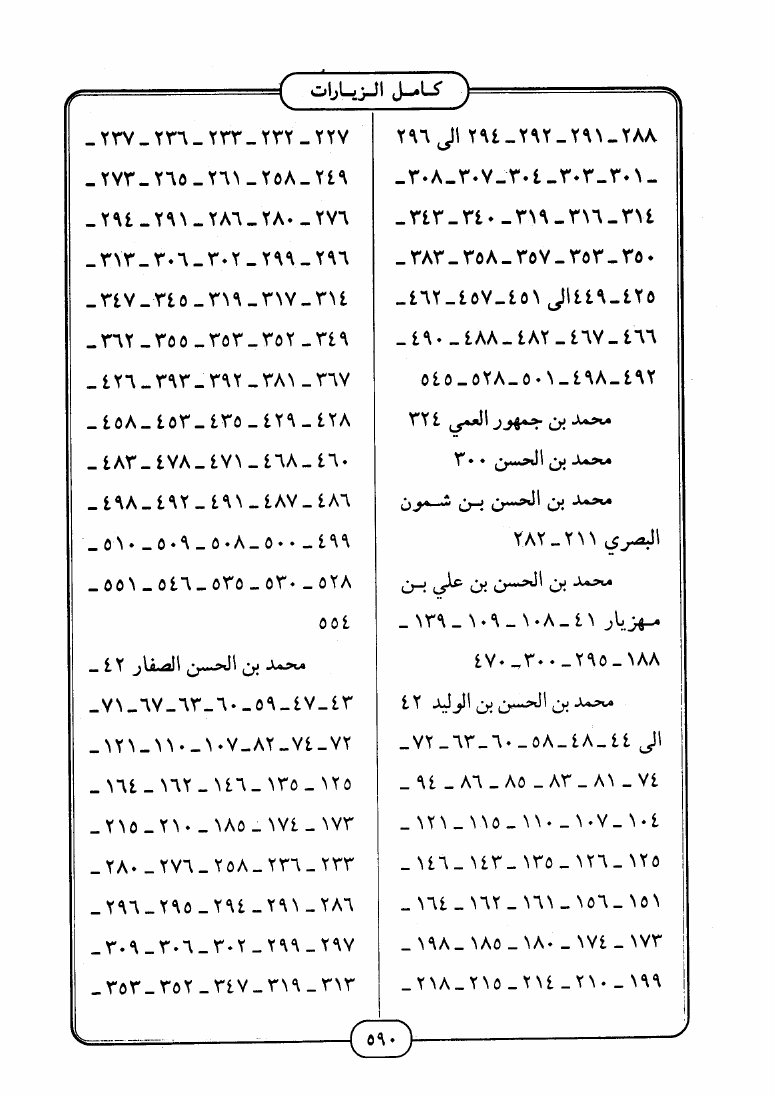 كامل الزيارات
٢٨٨ـ٢٩١ـ٢٩٢ـ ٢٩٤ الى ٢٩٦
ـ٣٠١ـ٣٠٣ـ٣٠٤ـ٣٠٧ـ٣٠٨ـ
٣١٤ـ٣١٦ـ٣١٩ـ٣٤٠ـ٣٤٣ـ
٣٥٠ـ٣٥٣ـ٣٥٧ـ٣٥٨ـ٣٨٣ـ
٤٢٥ـ٤٤٩الى ٤٥١ـ٤٥٧ـ٤٦٢ـ
٤٦٦ـ٤٦٧ـ٤٨٢ـ٤٨٨ـ٤٩٠ـ
٤٩٢ـ٤٩٨ـ٥٠١ـ٥٢٨ـ٥٤٥
محمد بن جمهور العمي ٣٢٤
محمد بن الحسن ٣٠٠
محمد بن الحسن بـن شـمون
البصري ٢١١ـ٢٨٢
محمد بن الحسن بن علي بـن
مـهزيار ٤١ـ١٠٨ـ١٠٩ـ١٣٩ـ
١٨٨ـ٢٩٥ـ٣٠٠ـ٤٧٠
محمد بن الحسن بن الوليد ٤٢
الى ٤٤ـ٤٨ـ٥٨ـ٦٠ـ٦٣ـ٧٢ـ
٧٤ ـ ٨١ ـ ٨٣ ـ ٨٥ ـ ٨٦ ـ ٩٤ ـ
١٠٤ـ١٠٧ـ١١٠ـ١١٥ـ١٢١ـ
١٢٥ـ١٢٦ـ١٣٥ـ١٤٣ـ١٤٦ـ
١٥١ـ١٥٦ـ١٦١ـ١٦٢ـ١٦٤ـ
١٧٣ـ١٧٤ـ١٨٠ـ١٨٥ـ١٩٨ـ
١٩٩ـ٢١٠ـ٢١٤ـ٢١٥ـ٢١٨ـ
٢٢٧ـ٢٣٢ـ٢٣٣ـ٢٣٦ـ٢٣٧ـ
٢٤٩ـ٢٥٨ـ٢٦١ـ٢٦٥ـ٢٧٣ـ
٢٧٦ـ٢٨٠ـ٢٨٦ـ٢٩١ـ٢٩٤ـ
٢٩٦ـ٢٩٩ـ٣٠٢ـ٣٠٦ـ٣١٣ـ
٣١٤ـ٣١٧ـ٣١٩ـ٣٤٥ـ٣٤٧ـ
٣٤٩ـ٣٥٢ـ٣٥٣ـ٣٥٥ـ٣٦٢ـ
٣٦٧ـ٣٨١ـ٣٩٢ـ٣٩٣ـ٤٢٦ـ
٤٢٨ـ٤٢٩ـ٤٣٥ـ٤٥٣ـ٤٥٨ـ
٤٦٠ـ٤٦٨ـ٤٧١ـ٤٧٨ـ٤٨٣ـ
٤٨٦ـ٤٨٧ـ٤٩١ـ٤٩٢ـ٤٩٨ـ
٤٩٩ـ٥٠٠ـ٥٠٨ـ٥٠٩ـ٥١٠ـ
٥٢٨ـ٥٣٠ـ٥٣٥ـ٥٤٦ـ٥٥١ـ
٥٥٤
محمد بن الحسن الصفار ٤٢ـ
٤٣ـ٤٧ـ٥٩ـ٦٠ـ٦٣ـ٦٧ـ٧١ـ
٧٢ـ٧٤ـ٨٢ـ١٠٧ـ١١٠ـ١٢١ـ
١٢٥ـ١٣٥ـ١٤٦ـ١٦٢ـ١٦٤ـ
١٧٣ـ١٧٤ـ١٨٥ـ٢١٠ـ٢١٥ـ
٢٣٣ـ٢٣٦ـ٢٥٨ـ٢٧٦ـ٢٨٠ـ
٢٨٦ـ٢٩١ـ٢٩٤ـ٢٩٥ـ٢٩٦ـ
٢٩٧ـ٢٩٩ـ٣٠٢ـ٣٠٦ـ٣٠٩ـ
٣١٣ـ٣١٩ـ٣٤٧ـ٣٥٢ـ٣٥٣ـ
٥٩٠